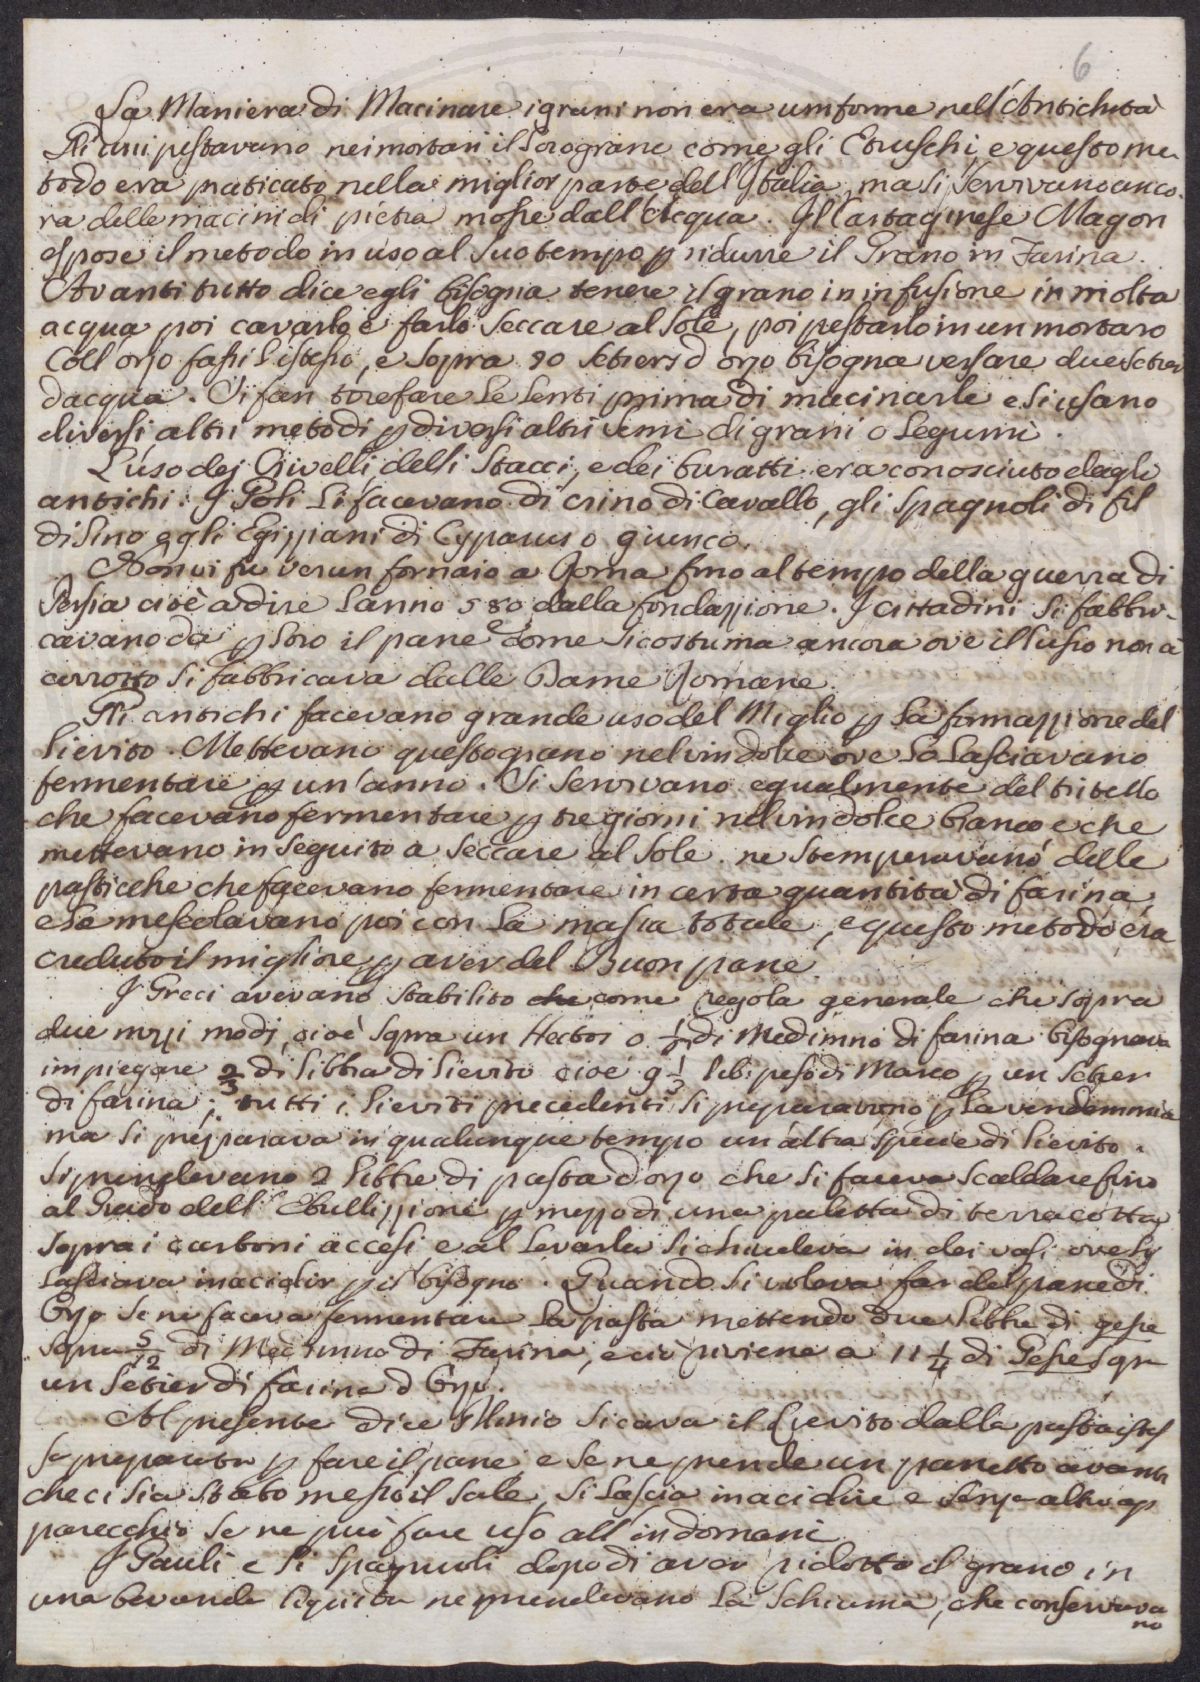 6
La Maniera di Macinare i grani non era uniforme nell'Antichità
Gli uni pestavano nei mortari il loro grano come gli Etruschi, e questo me-
todo era praticato nella miglior parte dell'Italia, ma si servivano anco-
ra delle macini di pietra mosse dall'Acqua. Il Cartaginese Magon
espose il metodo in uso al suo tempo p ridurre il Grano in Farina.
Avanti tutto dice egli bisogna tenere il grano in infusione in molta
acqua poi cavarlo e farlo seccare al Sole, poi pestarlo in un mortaro
Coll'orzo fassi l'istesso, e sopra 20 setiers d'orzo bisogna versare due setier
d'acqua. Si fan torefare le Lenti prima di macinarle e si usano
diversi altri metodi p diversi altri semi di grani o Legumi.
L'uso dei Crivelli delli Stacci, e dei buratti era conosciuto dagli
antichi: I Goti li facevano di crino di Cavallo, gli Spagnoli di fil
di lino e gli Egizziani di Cyparus o giunco.
Non vi fu verun fornaio a Roma fino al tempo della guerra di
Persia cioè a dire l'anno 580 dalla fondazzione. I cittadini si fabbri-
cavano da p loro il pane e come si costuma ancora ove il lusso non à
corrotto si fabbricava dalle Dame Romane.
Gli antichi facevano grande uso del Miglio p la formazzione del
Lievito. Mettevano questo grano nel vin dolce ove lo lasciavano
fermentare p un'anno. Si servivano egualmente del tritello
che facevano fermentare p tre giorni nel vin dolce bianco e che
mettevano in seguito a seccare al Sole. ne stemperavano delle
pasticche che facevano fermentare in certa quantità di farina,
e la mescolavano poi con la massa totale, e questo metodo era
creduto il migliore p aver del Buon pane.
I Greci avevano stabilito che come regola generale che sopra
due mezzi modi, cioè sopra un Hectos o 1/6 di Medimno di farina bisognava
impiegare 2/3 di libbra di lievito cioè 9 1/3 lib: peso di Marco p un Setier
di farina; tutti i lieviti precedenti si preparavano p la vendemmia
ma si preparava in qualunque tempo un'altra specie di lievito.
si prendevano 2 libbre di pasta d'orzo che si faceva scaldare fino
al Grado dell'Ebullizzione p mezzo di una paletta di terra cotta
sopra i carboni accesi e al levarla si chiudeva in dei vasi ove si
lasciava inacidir p il bisogno. Quando si voleva far del pane di
Orzo se ne faceva fermentare la pasta mettendo due libbre di gesse
sopra 5/12 di Medimno di Farina, e ciò riviene a 11 1/4 di Gesse sopra
un Setier di farina d'Orzo.
Al presente dice Plinio si cava il Lievito dalla pasta istes
sa preparata p fare il pane, e se ne prende un panetto avanti
che ci sia stato messo il sale, si lascia inacidire e senza altro ap
parecchio se ne può fare uso all'indomani
I Gauli e li Spagnuoli dopo di aver ridotto il grano in
una bevanda liquida ne prendevano la Schiuma, che conservava
no